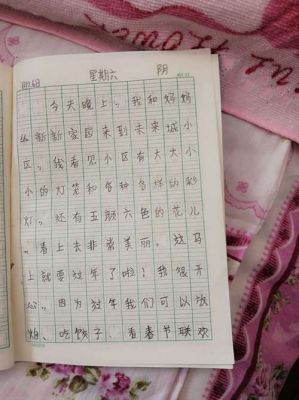 星期六 阴
今天晚上,我和妈妈
从新新家园来到未来城小
区,我看见小区有大大小
小的灯笼和各种各样的彩
灯,还有五颜六色的花儿
,看上去非常美丽。这马
上就要过年了啦!我很开
心。因为过年我们可以放
炮、吃饺子、看春节联欢